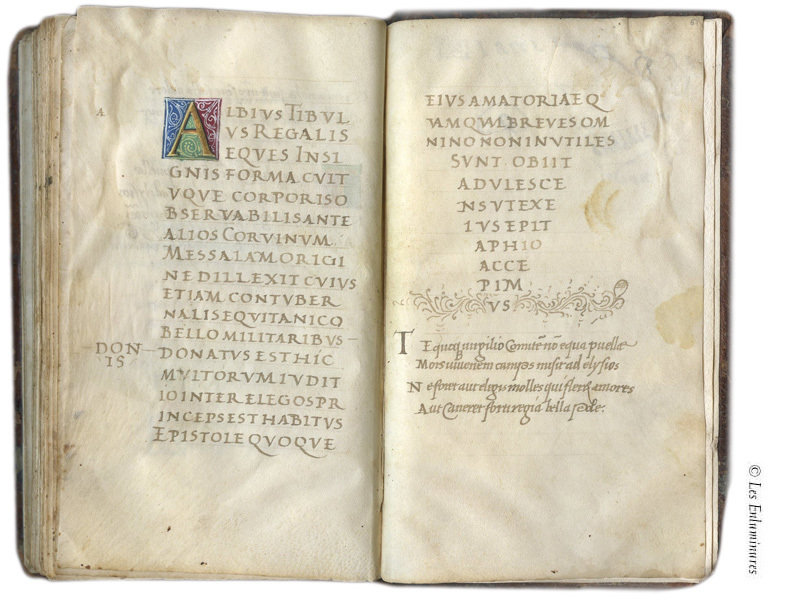 ALBIVS TIBVL
VS REGALIS
EQVES INSI
GNIS FORMA CVLT
VQVE CORPORIS O
BSERVABILIS ANTE
ALIOS CORVINVM
MESSALAM ORIGI
NE DILLEXIT CVIVS
ETIAM CONTVBER
NALIS EQVITANICO
BELLO MILITARIBVS
DONIS
DONATVS EST HIC
MVLTORVM IVDIT
IO INTER ELEGOS PR
INCEPS EST HABITVS
EPISTOLE QVOQVE
EIVS AMATORIAE Q
VAMQVI BREVES OM
NINO NON INVTILES
SVNT OBIIT
ADVLESCE
NS VT EXE
IVS EPIT
APHIO
ACCE
PIM
VS
Te quoq virgilio Comitē nō equa puella
Mors iuvenem campos misit ad elysios
Ne foret aut elegis molles qui fleret amores
Aut Caneret forti regia bella pede:
© Les Enluminures